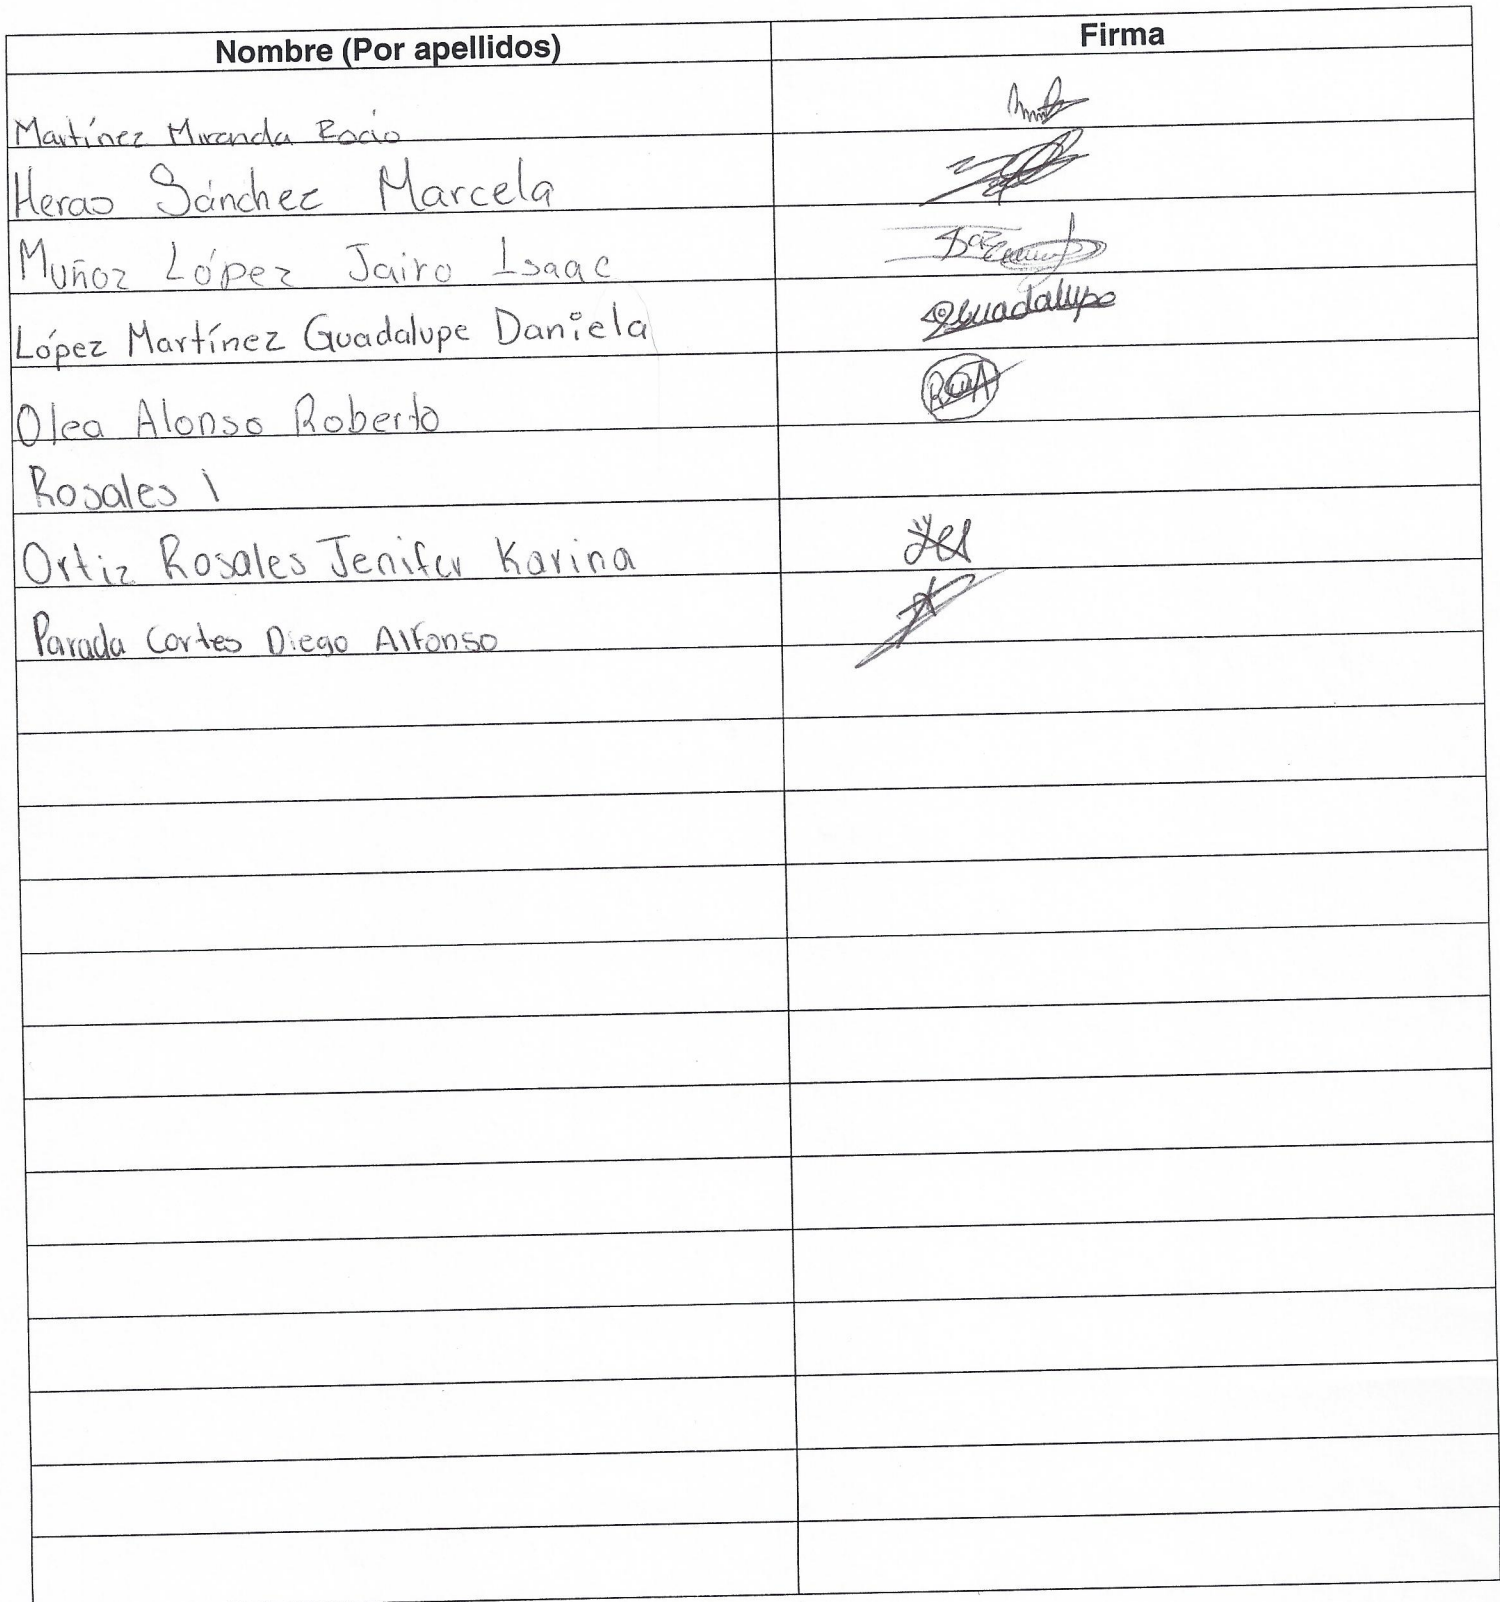 Nombre (Por apellidos) Firma
Martínez Miranda Rocio
Heras Sánchez Marcela
Muñoz López Jairo Isaac
López Martínez Guadalupe Daniela Guadalupe
Olea Alonso Roberto ROA
Rosales
Ortiz Rosales Jenifer Karina
Parada Cortes Diego Alfonso